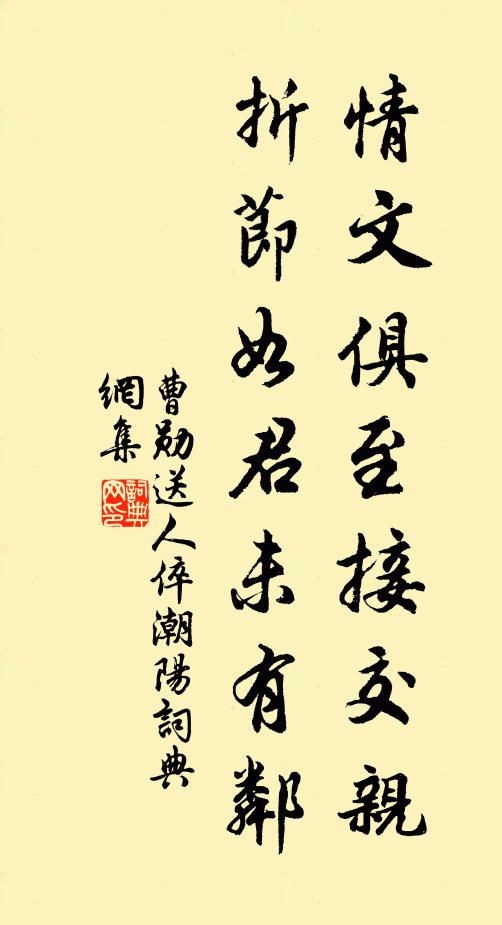 情文俱至接交親
折節如君未有鄰
曹勛送人倅潮陽詞典
網集
詞典網印